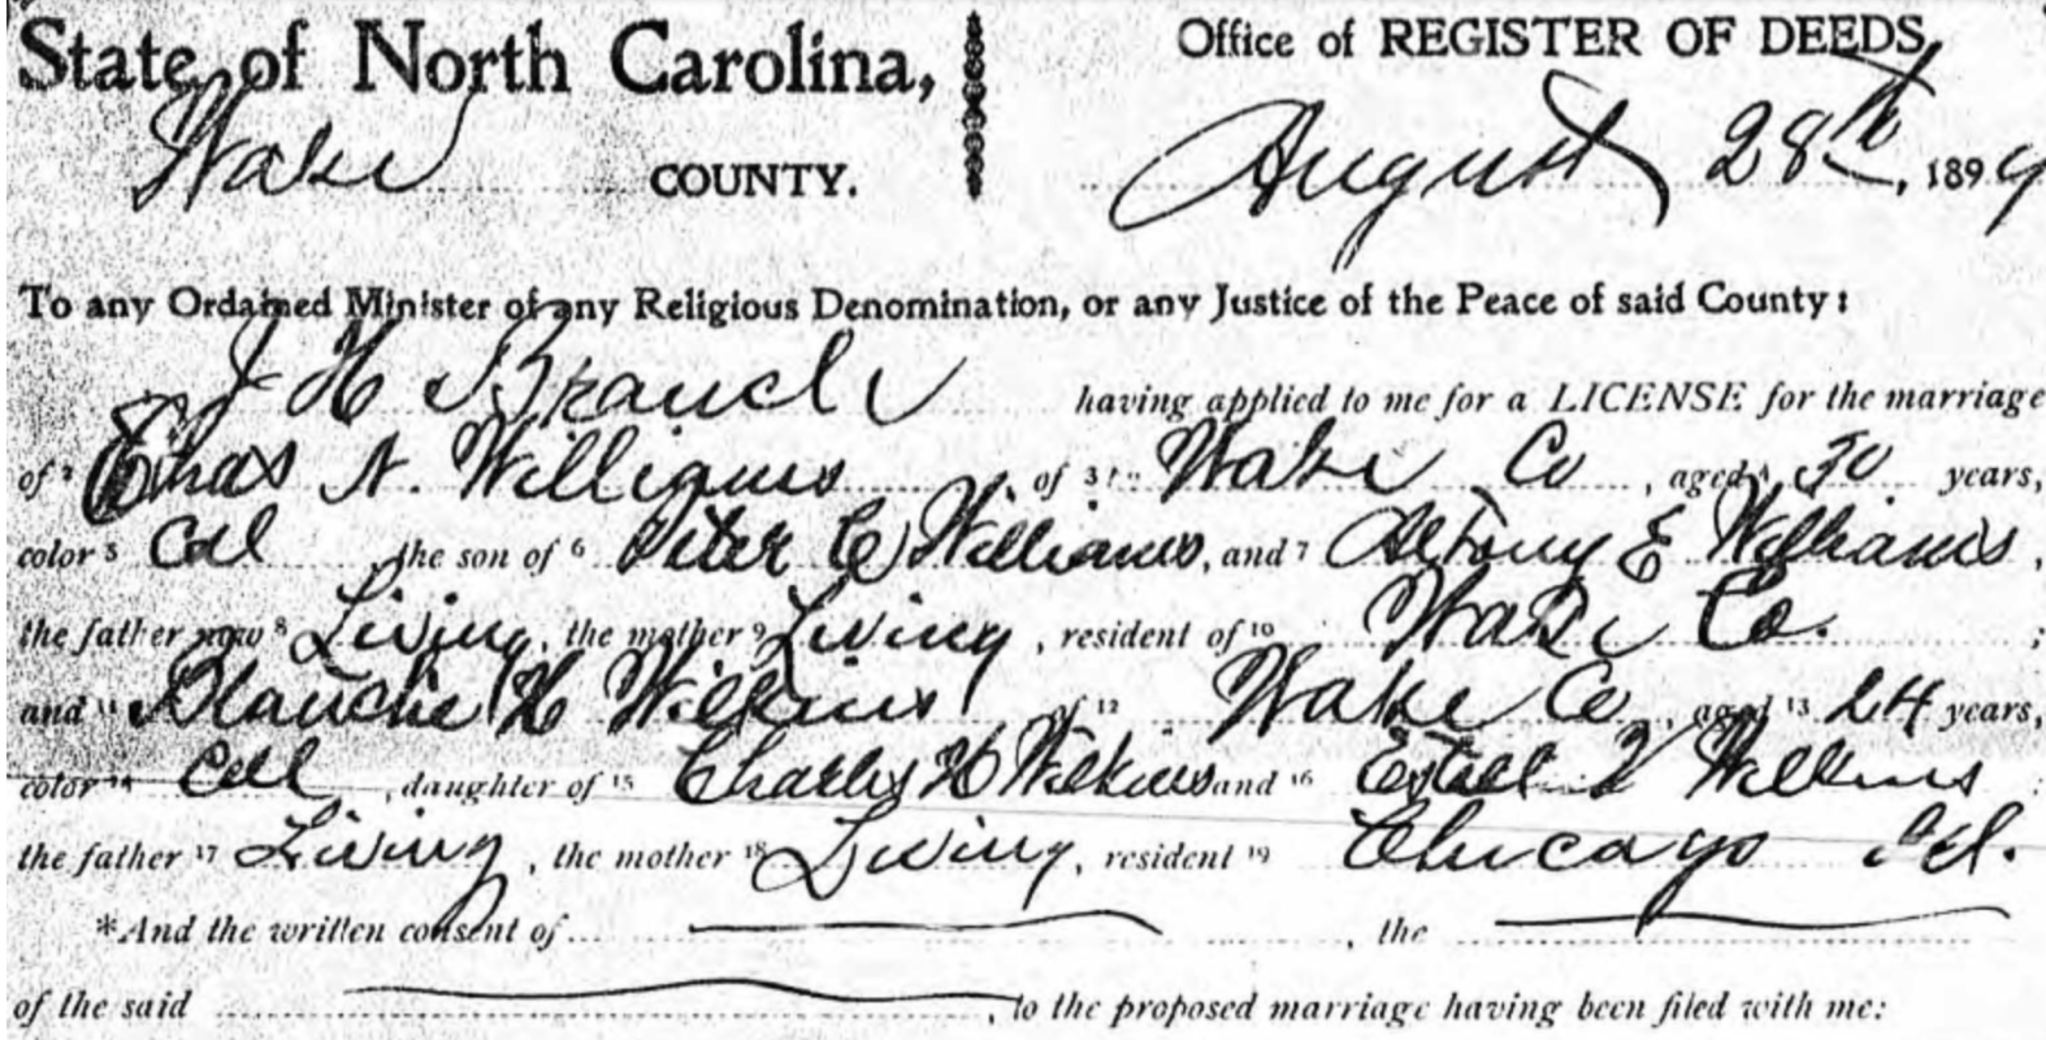 State of North Carolina,
Office of REGISTER OF DEEDS,
Wake COUNTY.
August 28th, 1899
To any Ordained Minister of any Religious Denomination, or any Justice of the Peace of said County:
J H Branch having applied to me for a LICENSE for the marriage
of 2 Chas N. Williams, of 3 Wake Co, aged 4 30 years,
color 5 Col, the son of 6 Peter C Williams, and 7 E Williams,
the father now 8 Living, the mother 9 Living, resident of 10 Wake Co.;
and 11 Blanche H Wilkins of 12 Wake Co, aged 13 24 years,
color 14 Col, daughter of 15 Charles H Wilkins and 16 V Wilkins;
the father 17 Living, the mother 18 Living, resident 19 Chicago Ill.
*And the written consent of, the
of the said, to the proposed marriage having been filed with me: